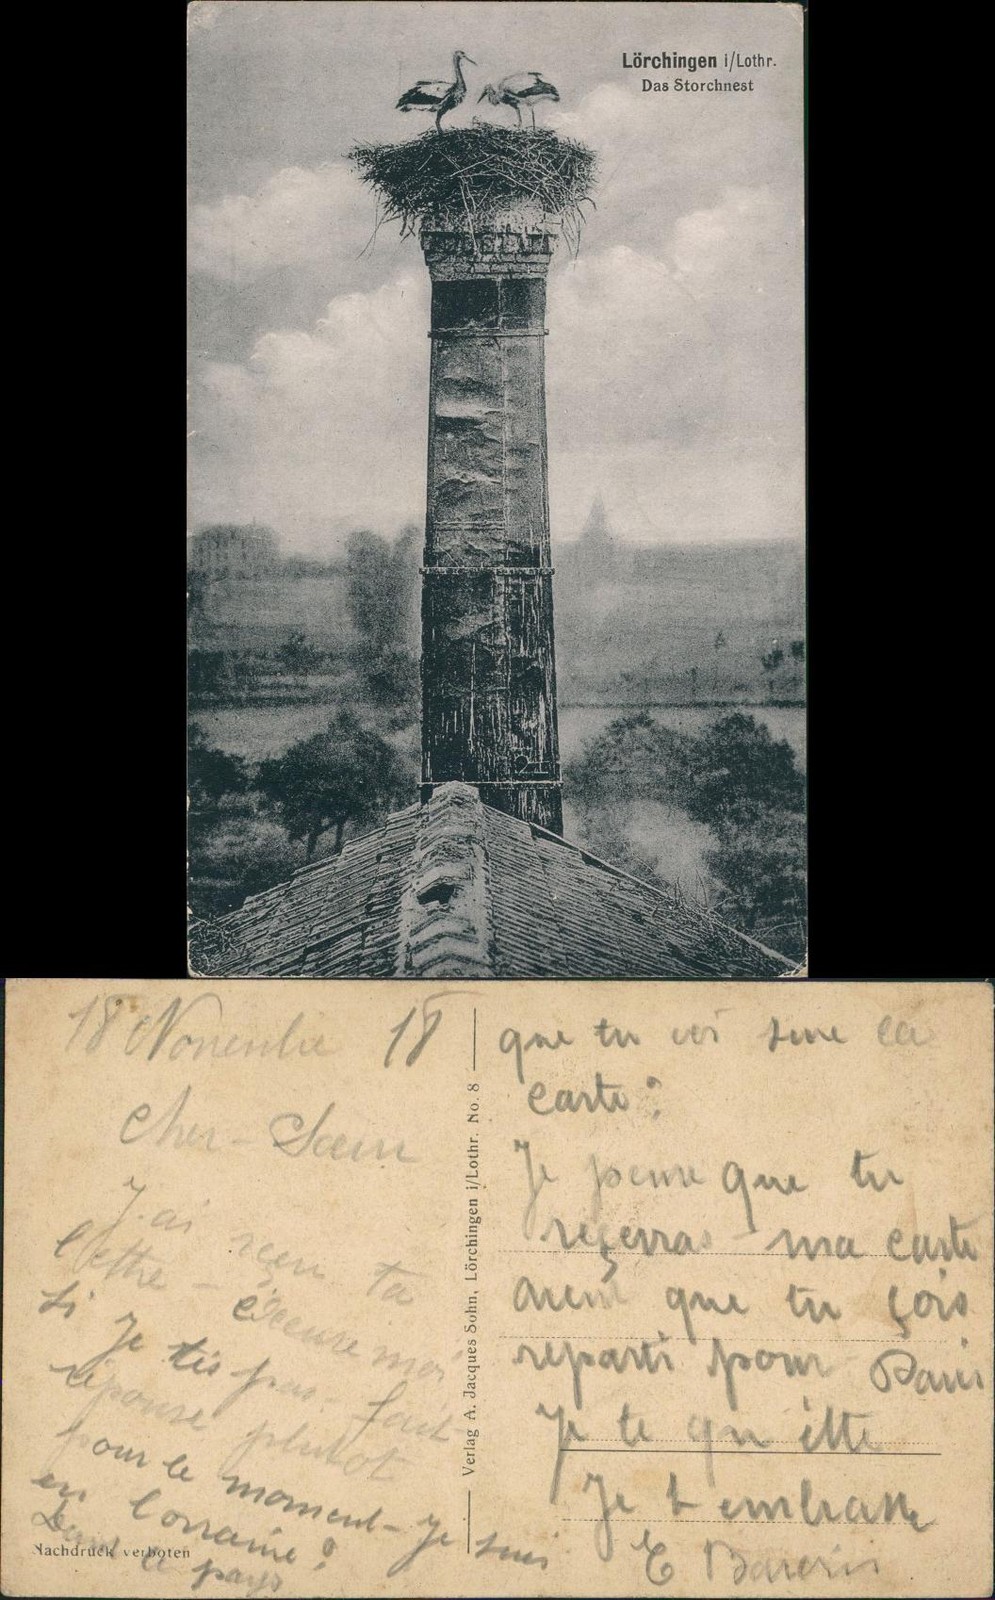 Lörchingen i/Lothr.
Das Storchnest
18 Novembre 18
Cher-Sœur
J-ai reçu ta
lettre - éxcuse moi
si je tés pas - fait
réponse plutot
pour le moment - je suis
en Lorraine :
Dans le pays
Nachdruck verboten
Verlag A. Jacques Sohn, Lörchingen i/Lothr. No. 8
que tu voi sure la
carte :
Je pense que tu
reçevras ma carte
avent que tu çois
reparti pour Paris
Je te qu itte
Je t embrasse
E